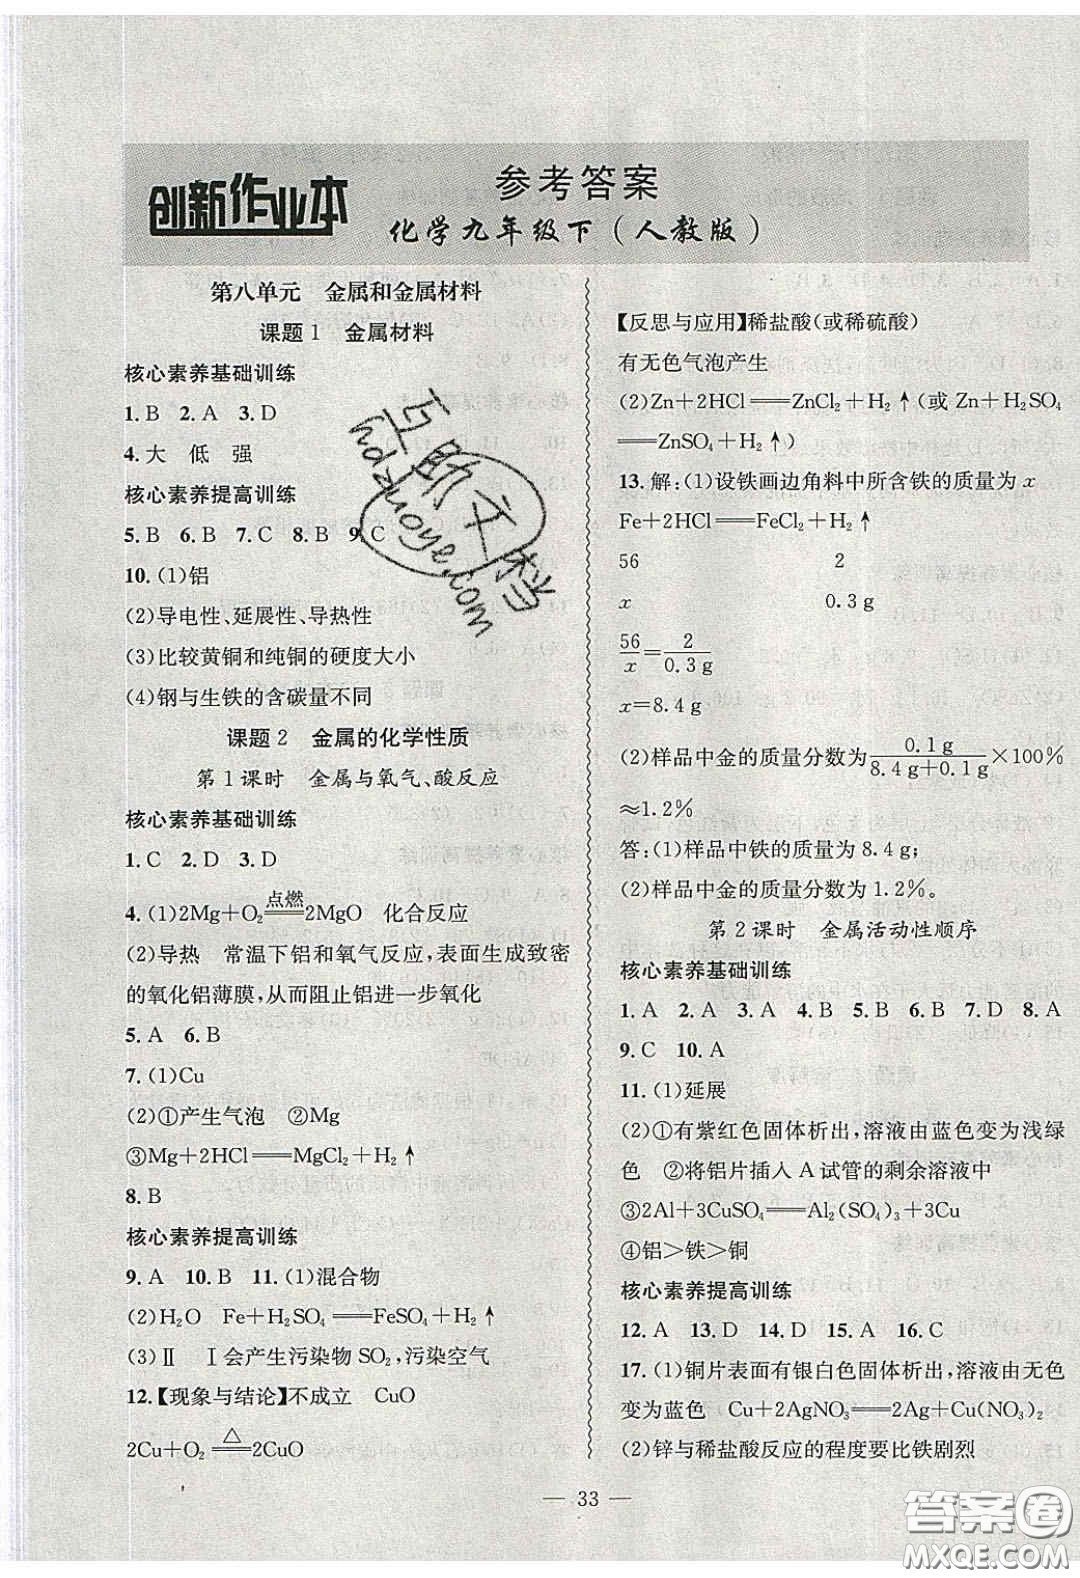 创新作业本
参考答案
化学九年级下（人教版）
第八单元　金属和金属材料
课题 1　金属材料
核心素养基础训练
1. B　2. A　3. D
4. 大　低　强
核心素养提高训练
5. B　6. B　7. C　8. B　9. C
10. (1)铝
(2)导电性、延展性、导热性
(3)比较黄铜和纯铜的硬度大小
(4)钢与生铁的含碳量不同
课题 2　金属的化学性质
第 1 课时　金属与氧气、酸反应
核心素养基础训练
1. C　2. D　3. D
4. (1)2Mg＋O₂ ═点燃═ 2MgO　化合反应
(2)导热　常温下铝和氧气反应，表面生成致密
的氧化铝薄膜，从而阻止铝进一步氧化
5. A　6. B
7. (1)Cu
(2)①产生气泡　②Mg
③Mg＋2HCl══MgCl₂＋H₂↑
8. B
核心素养提高训练
9. A　10. B　11. (1)混合物
(2)H₂O　Fe＋H₂SO₄══FeSO₄＋H₂↑
(3)Ⅱ　Ⅰ会产生污染物 SO₂，污染空气
12.【现象与结论】不成立　CuO
2Cu＋O₂ ═△═ 2CuO
【反思与应用】稀盐酸(或稀硫酸)
有无色气泡产生
(2)Zn＋2HCl══ZnCl₂＋H₂↑(或 Zn＋H₂SO₄
══ZnSO₄＋H₂↑)
13. 解：(1)设铁画边角料中所含铁的质量为 x
Fe＋2HCl══FeCl₂＋H₂↑
56　2
x　0.3 g
56/x＝2/0.3 g
x＝8.4 g
(2)样品中金的质量分数为 0.1 g/(8.4 g＋0.1 g)×100%
≈1.2%
答：(1)样品中铁的质量为 8.4 g；
(2)样品中金的质量分数为 1.2%。
第 2 课时　金属活动性顺序
核心素养基础训练
1. A　2. A　3. A　4. B　5. B　6. B　7. D　8. A
9. C　10. A
11. (1)延展
(2)①有紫红色固体析出，溶液由蓝色变为浅绿
色　②将铝片插入 A 试管的剩余溶液中
③2Al＋3CuSO₄══Al₂(SO₄)₃＋3Cu
④铝＞铁＞铜
核心素养提高训练
12. A　13. D　14. D　15. A　16. C
17. (1)铜片表面有银白色固体析出，溶液由无色
变为蓝色　Cu＋2AgNO₃══2Ag＋Cu(NO₃)₂
(2)锌与稀盐酸反应的程度要比铁剧烈
— 33 —
互助文档
hdzuoye.com
答案圈
MXQE.COM